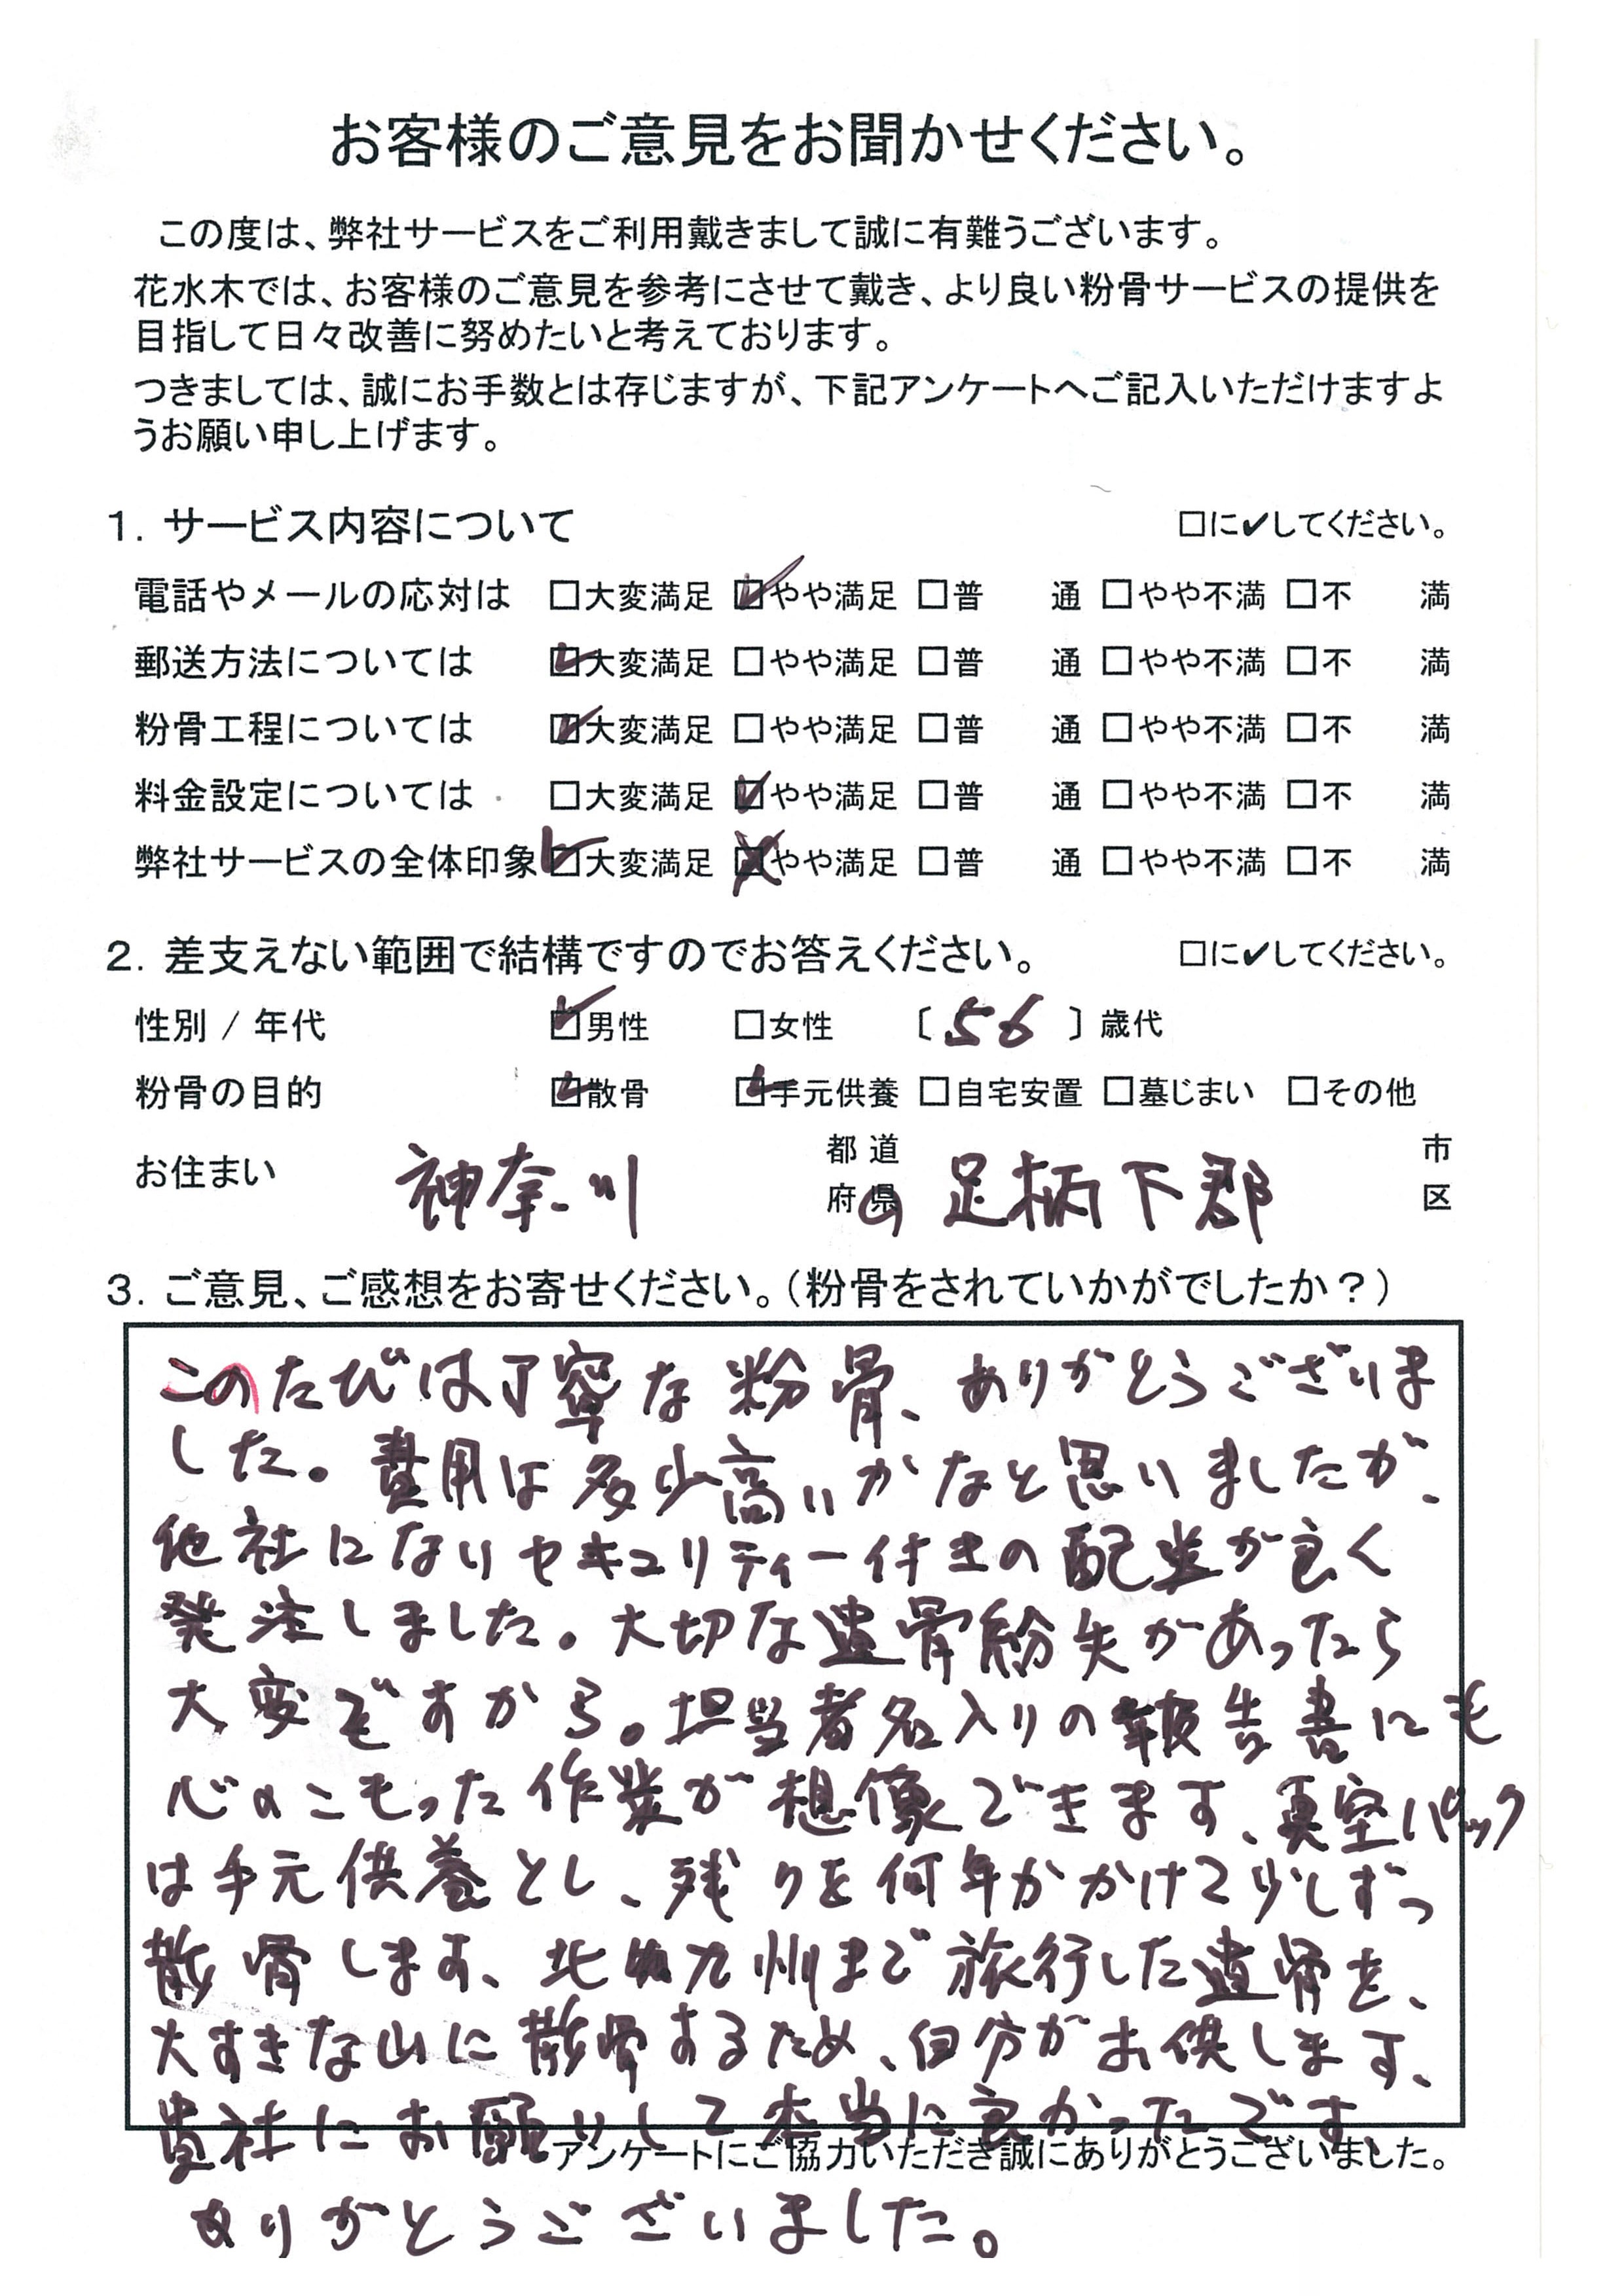 お客様のご意見をお聞かせください。
この度は、弊社サービスをご利用戴きまして誠に有難うございます。
花水木では、お客様のご意見を参考にさせて戴き、より良い粉骨サービスの提供を
目指して日々改善に努めたいと考えております。
つきましては、誠にお手数とは存じますが、下記アンケートへご記入いただけますよ
うお願い申し上げます。
1. サービス内容について □に✔してください。
電話やメールの応対は □大変満足 ☑やや満足 □普 通 □やや不満 □不 満
郵送方法については ☑大変満足 □やや満足 □普 通 □やや不満 □不 満
粉骨工程については ☑大変満足 □やや満足 □普 通 □やや不満 □不 満
料金設定については □大変満足 ☑やや満足 □普 通 □やや不満 □不 満
弊社サービスの全体印象 ☑大変満足 ☒やや満足 □普 通 □やや不満 □不 満
2. 差支えない範囲で結構ですのでお答えください。 □に✔してください。
性別 / 年代 ☑男性 □女性 〔 56 〕歳代
粉骨の目的 ☑散骨 ☑手元供養 □自宅安置 □墓じまい □その他
お住まい 神奈川 都道府県 足柄下郡 市区
3. ご意見、ご感想をお寄せください。（粉骨をされていかがでしたか？）
このたびは丁寧な粉骨、ありがとうございま
した。費用は多少高いかなと思いましたが、
他社にないセキュリティー付きの配送が良く
発注しました。大切な遺骨紛失があったら
大変ですから。担当者名入りの報告書にも
心のこもった作業が想像できます、真空パック
は手元供養とし、残りを何年かかけて少しずつ
散骨します、北九州まで旅行した遺骨を、
大すきな山に散骨するため、自分がお供します、
貴社にお願いして本当に良かったです、
アンケートにご協力いただき誠にありがとうございました。
ありがとうございました。